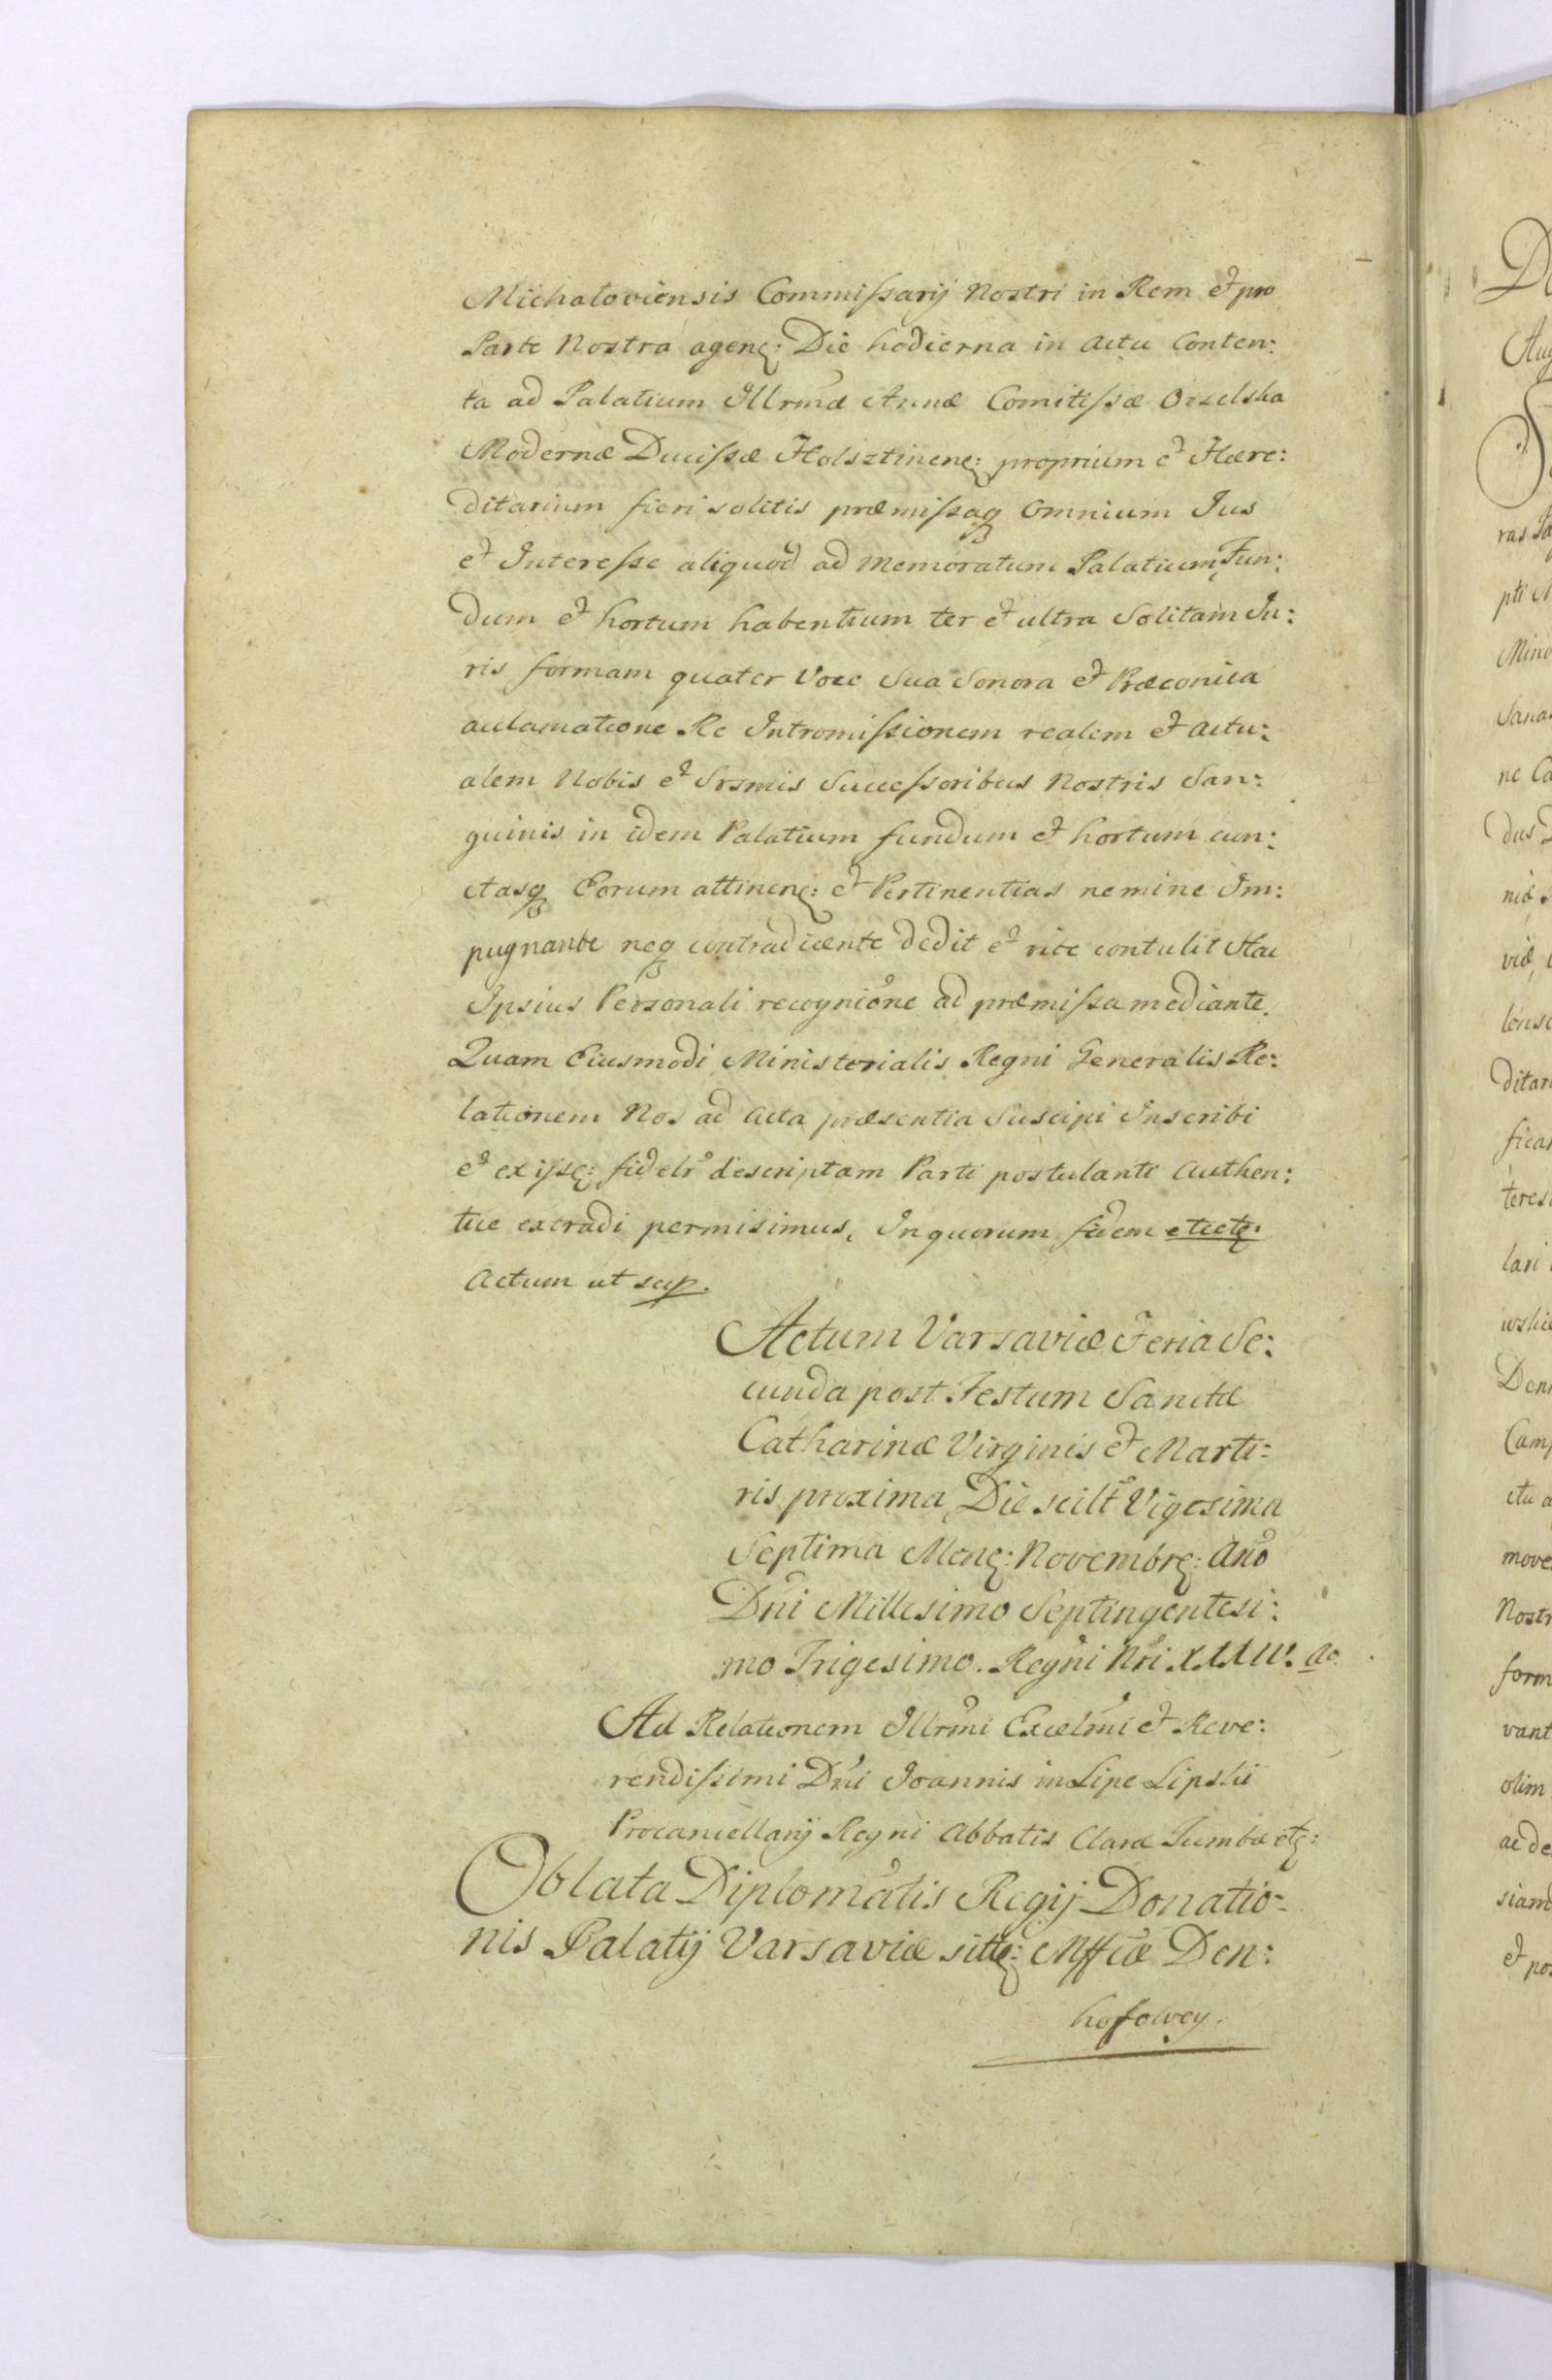 Michaloviensis Commissarij Nostri in Rem et pro
Parte Nostra agenę: Die hodierna in actu Conten:
ta ad Palatium Illrmæ Annæ Comitissæ Orzelska
Modernæ Ducissæ Holsztinenę: proprium et Hære:
ditarium fieri solitis præmissaq Omnium Jus
et Interesse aliquod ad memoratum Palatium, Fun:
dum et hortum habentium ter et ultra Solitam Ju:
ris formam quater Voce Sua Sonora et Præconica
acclamatione Re Intromissionem realem et actu:
alem Nobis et Srsmis Successoribus Nostris San:
guinis in idem Palatium fundum et hortum cun:
ctasq Eorum attinenę: et Pertinentias nemine Im:
pugnante neq contradicente dedit et rite contulit Hac
Ipsius Personali recognione ad præmissa mediante.
Quam Eiusmodi Ministerialis Regni Generalis Re:
lationem Nos ad acta præsentia Suscipi Inscribi
et ex ijsę: fidelr descriptam Parti postulanti authen:
tice extradi permisimus, In quorum fidem etcetę.
Actum ut sup.
Actum Varsaviæ Feria Se:
cunda post Festum Sanctæ
Catharinæ Virginis et Marti=
ris proxima, Die scilt Vigesima
Septima Menę: Novembrę: Ano
Dni Millesimo Septingentesi:
mo Trigesimo. Regni Nri XXXIV. ao
Ad Relationem Illrmi Excelmi et Reve:
rendissimi Dni Joannis in Lipe Lipski
Procancellarij Regni Abbatis Claræ Tumbæ etę:
Oblata Diplomatis Regij Donatio=
nis Palatij Varsaviæ sittę: Mffcæ Den:
hoffowey.